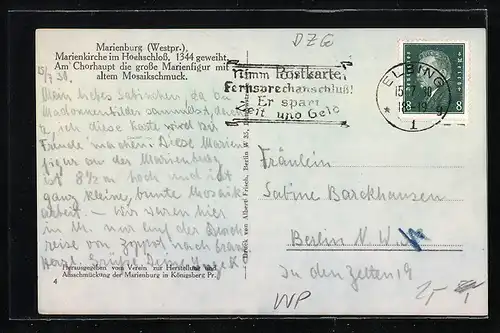 DZG
Marienburg (Westpr.),
Marienkirche im Hochschloß. 1344 geweiht.
Am Chorhaupt die große Marienfigur mit
altem Mosaikschmuck.
Nimm Postkarte,
Fernsprechanschluß!
Er spart
Zeit und Geld
ELBING
1
8 8
Mein liebes Sabinchen, da du
Madonnenbilder sammelst,
ich, diese Karte wird dir
Freude machen. Diese Marien
figur an der Marienburg
ist 8½ m hoch und ist
ganz kleine, bunte Mosaik
arbeit. – Wir waren hier
in M. nur auf der Durch
reise von Zoppot nach
Fräulein
Sabine Barckhausen
Berlin N. W.
In den Zelten 19
Druck von Albert Frisch, Berlin W 35.
Herausgegeben vom Verein zur Herstellung und
Ausschmückung der Marienburg in Königsberg Pr.
4
WP